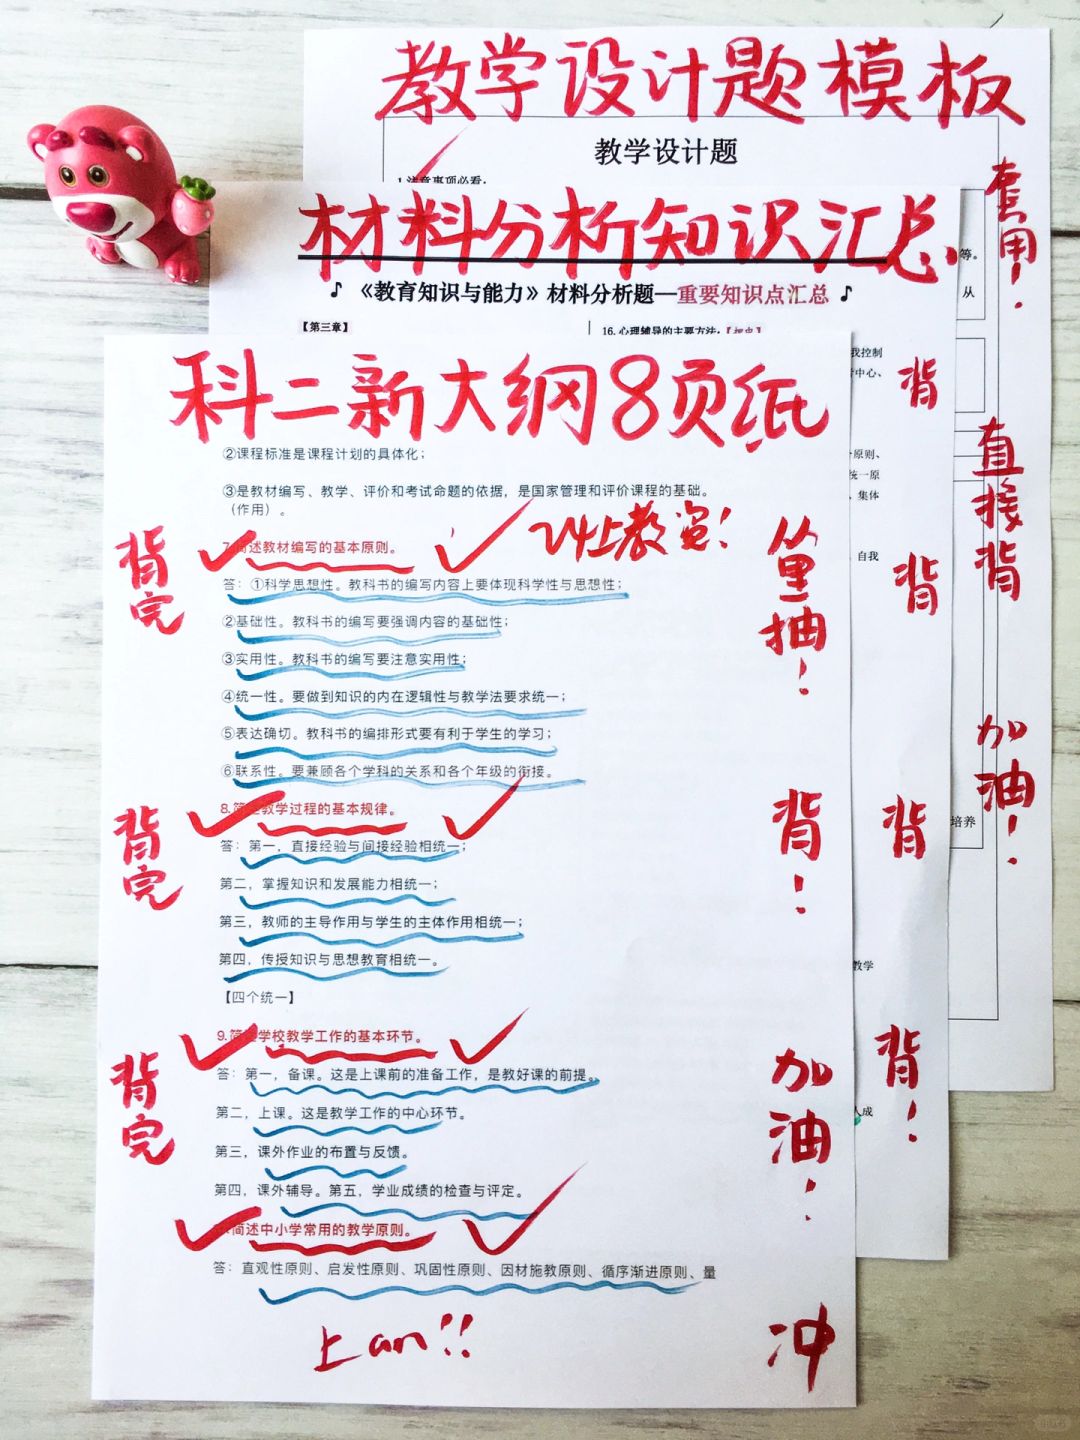 教学设计题模板
教学设计题
1.注意事项必看：
套用！
等。
从
材料分析知识汇总
♪《教育知识与能力》材料分析题—重要知识点汇总♪
【第三章】
16.心理辅导的主要方法：【
我控制
中心、
背
原则、
统一原
、集体
直接背
自我
背
加油！
培养
背
教学
背！
人成
科二新大纲8页纸
②课程标准是课程计划的具体化；
③是教材编写、教学、评价和考试命题的依据，是国家管理和评价课程的基础。
（作用）。
背完
7.简述教材编写的基本原则。
24上教资！
答：①科学思想性。教科书的编写内容上要体现科学性与思想性；
②基础性。教科书的编写要强调内容的基础性；
③实用性。教科书的编写要注意实用性；
④统一性。要做到知识的内在逻辑性与教学法要求统一；
⑤表达确切。教科书的编排形式要有利于学生的学习；
⑥联系性。要兼顾各个学科的关系和各个年级的衔接。
抽！
背完
8.简述教学过程的基本规律。
答：第一，直接经验与间接经验相统一；
第二，掌握知识和发展能力相统一；
第三，教师的主导作用与学生的主体作用相统一；
第四，传授知识与思想教育相统一。
【四个统一】
背！
背完
9.简述学校教学工作的基本环节。
答：第一，备课。这是上课前的准备工作，是教好课的前提。
第二，上课。这是教学工作的中心环节。
第三，课外作业的布置与反馈。
第四，课外辅导。第五，学业成绩的检查与评定。
加油！
简述中小学常用的教学原则。
答：直观性原则、启发性原则、巩固性原则、因材施教原则、循序渐进原则、量
上an！！
冲